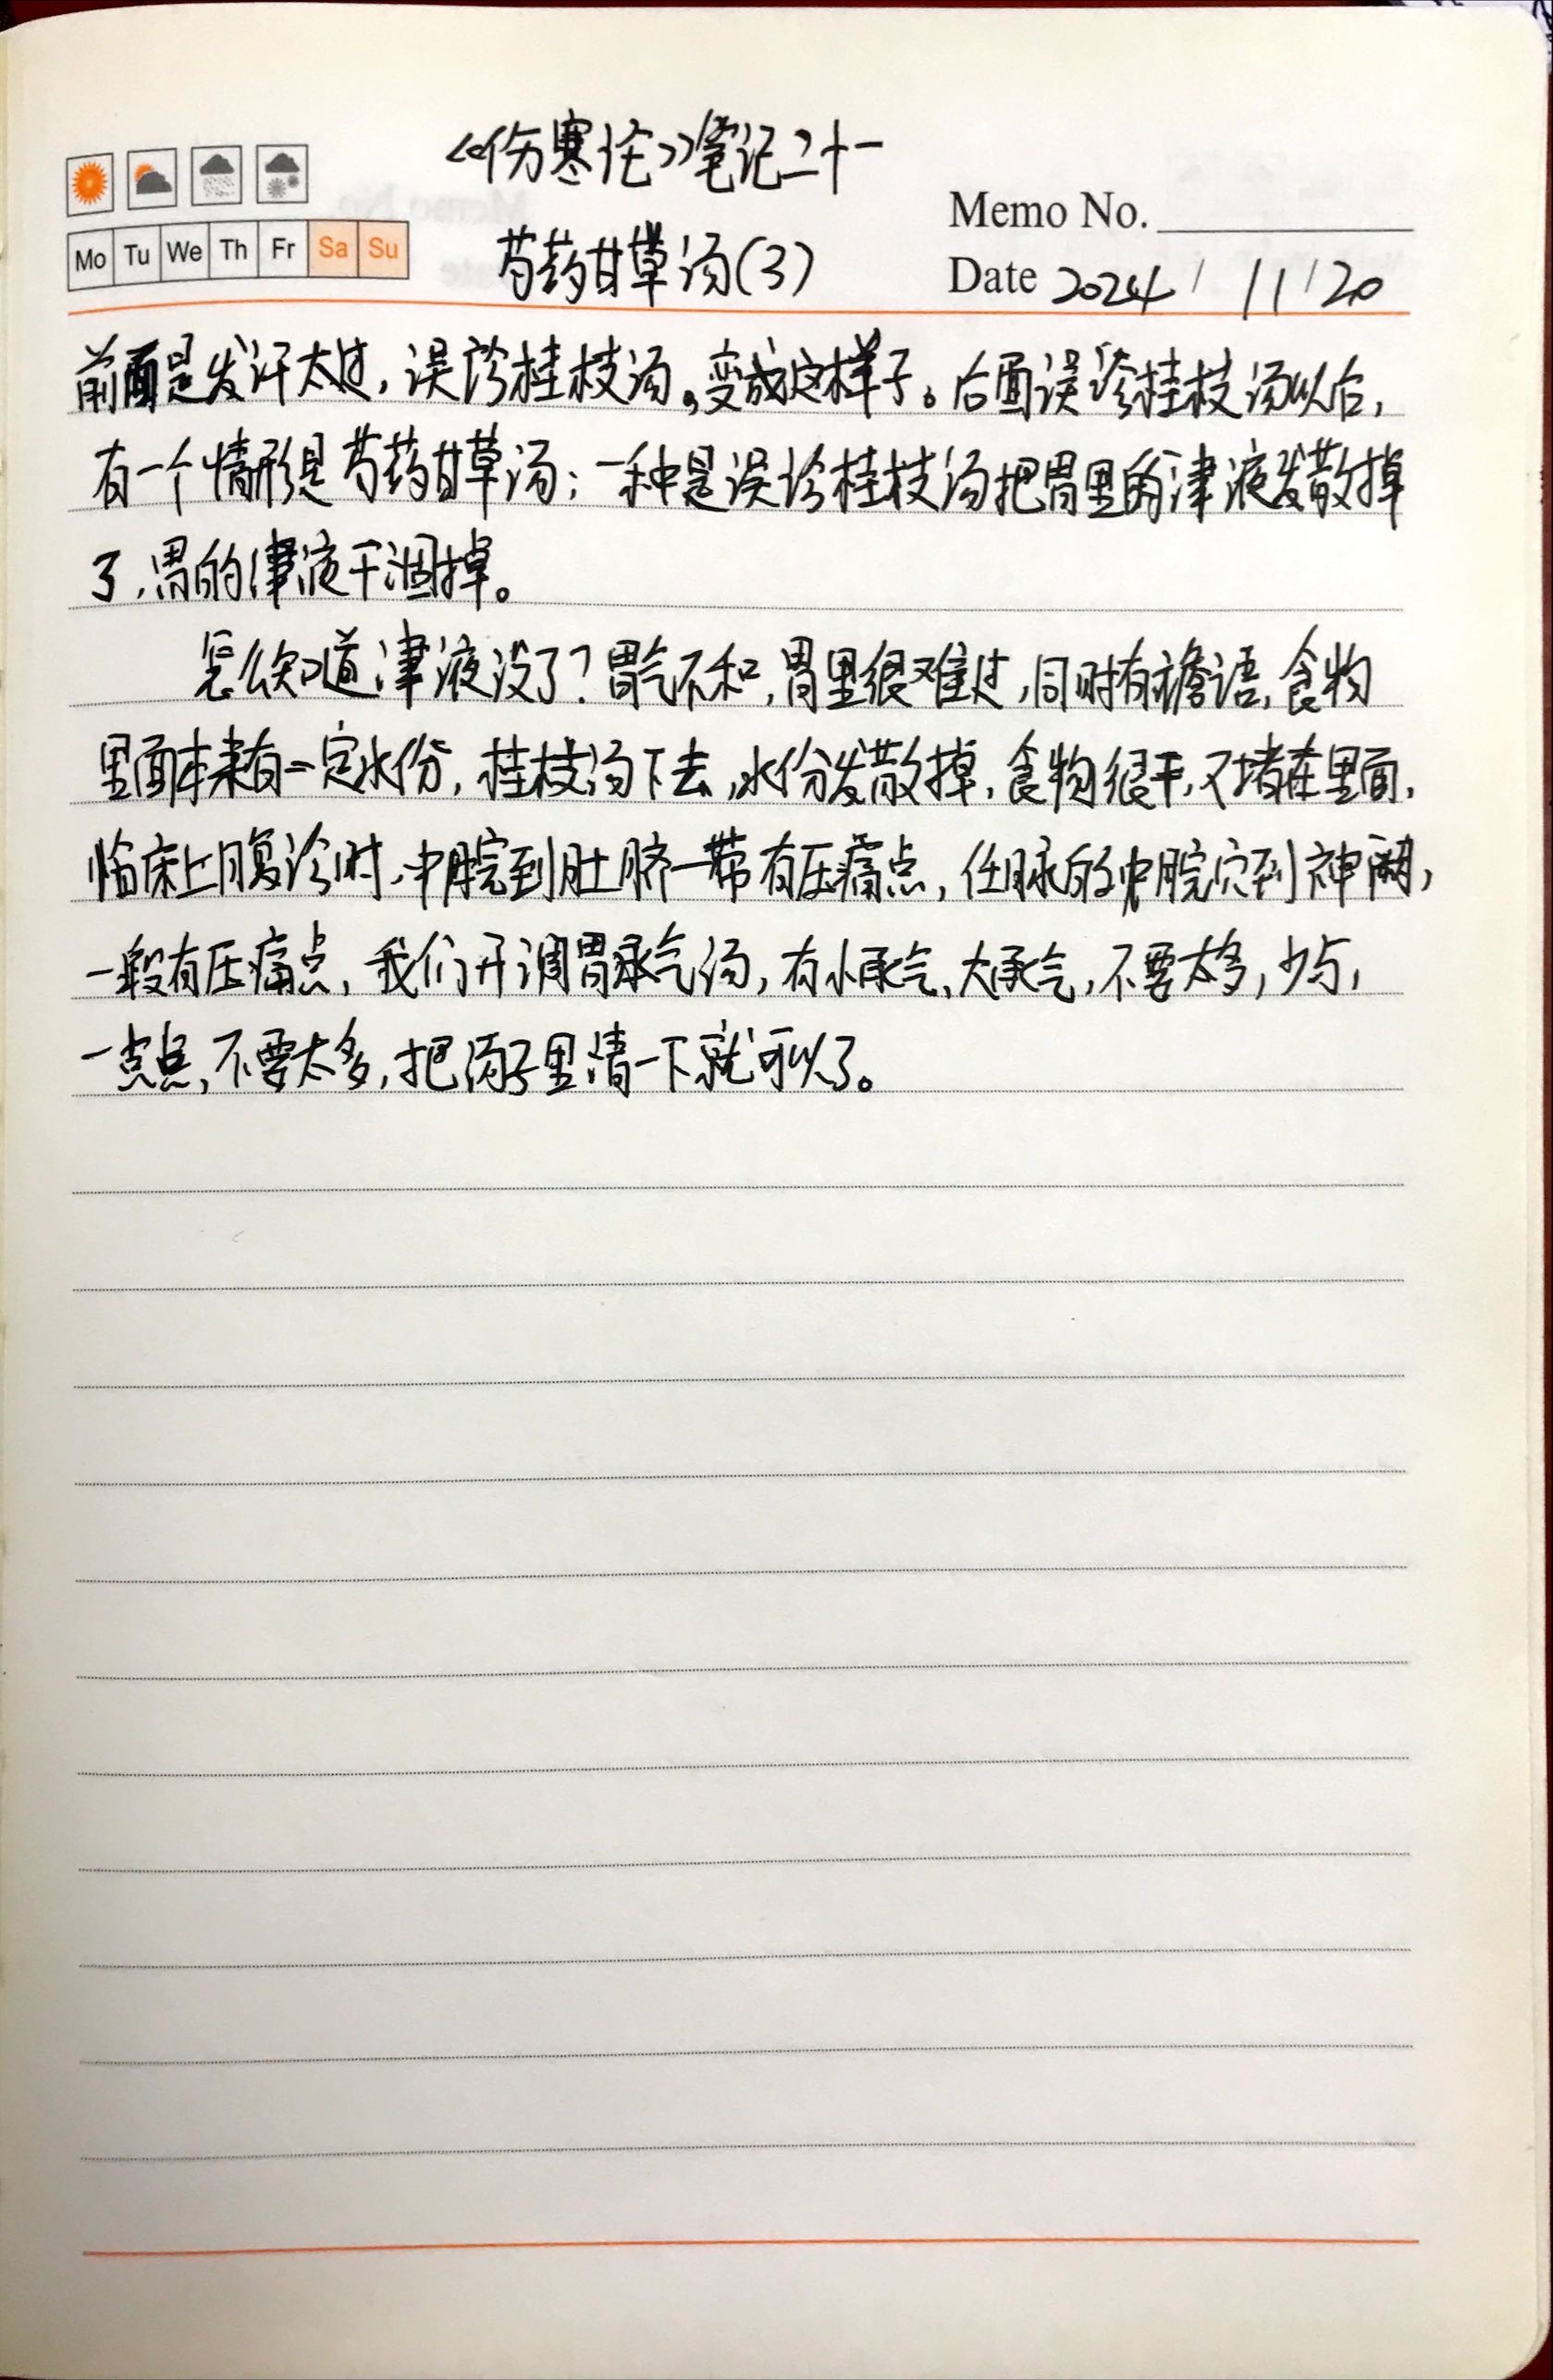 《伤寒论》笔记二十一
Mo Tu We Th Fr Sa Su
芍药甘草汤(3)
Memo No.
Date 2024 / 11 / 20
前面是发汗太过,误诊桂枝汤。变成这样子。后面误诊桂枝汤以后,
有一个情形是芍药甘草汤;一种是误诊桂枝汤把胃里的津液发散掉
了,胃的津液干涸掉。
怎么知道津液没了?胃气不和,胃里很难过,同时有谵语,食物
里面本来有一定水份,桂枝汤下去,水份发散掉,食物很干,又堵在里面,
临床上腹诊时,中脘到肚脐一带有压痛点,任脉的中脘穴到神阙,
一般有压痛点,我们开调胃承气汤,有小承气、大承气,不要太多,少与,
一点点,不要太多,把汤子里清一下就可以了。